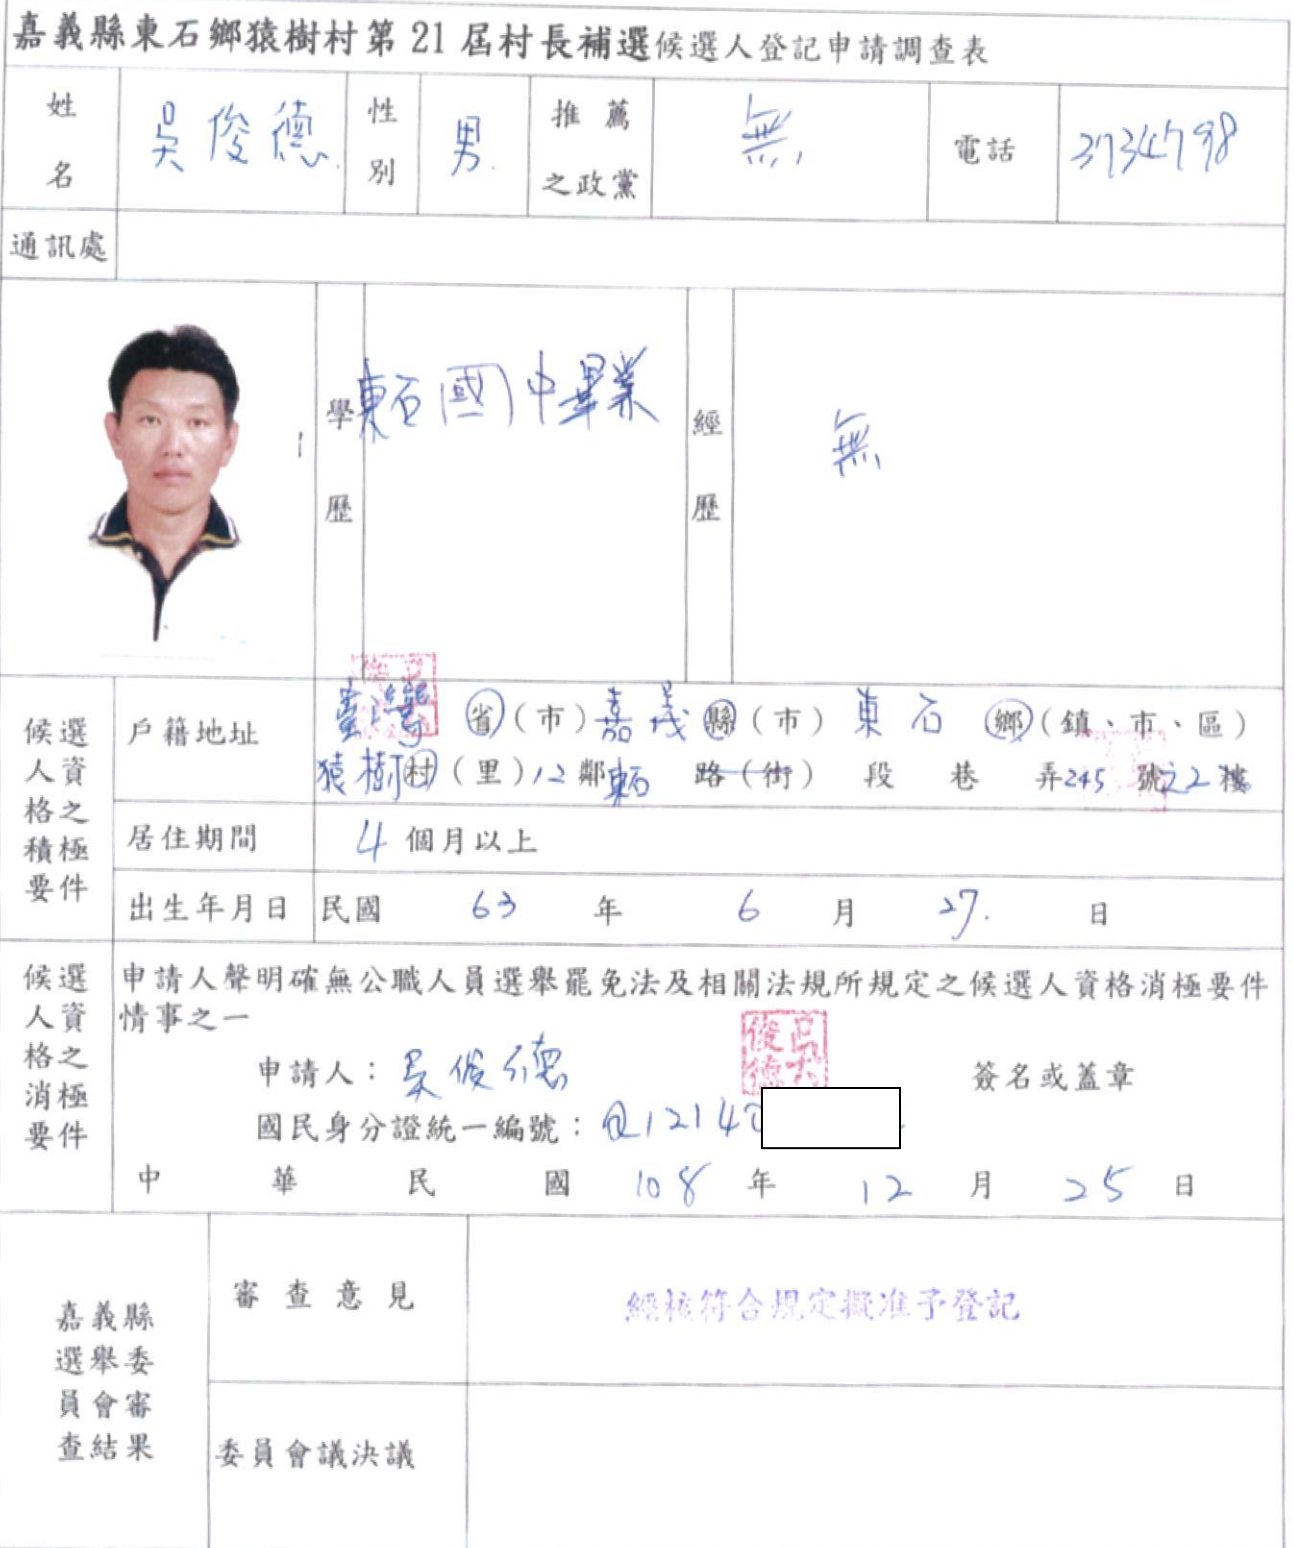 嘉義縣東石鄉猿樹村第21屆村長補選候選人登記申請調查表
姓名 吳俊德 性別 男 推薦之政黨 無 電話 3734798
通訊處
學歷 東石國中畢業 經歷 無
候選人資格之積極要件
戶籍地址 臺灣省(市)嘉義縣(市)東石鄉(鎮、市、區)
猿樹村(里)12鄰東石路(街)段巷弄245號之2樓
居住期間 4個月以上
出生年月日 民國63年6月27日
候選人資格之消極要件
申請人聲明確無公職人員選舉罷免法及相關法規所規定之候選人資格消極要件
情事之一
申請人:吳俊德 吳俊德 簽名或蓋章
國民身分證統一編號:Q12142
中華民國108年12月25日
嘉義縣選舉委員會審查結果
審查意見 經核符合規定擬准予登記
委員會議決議